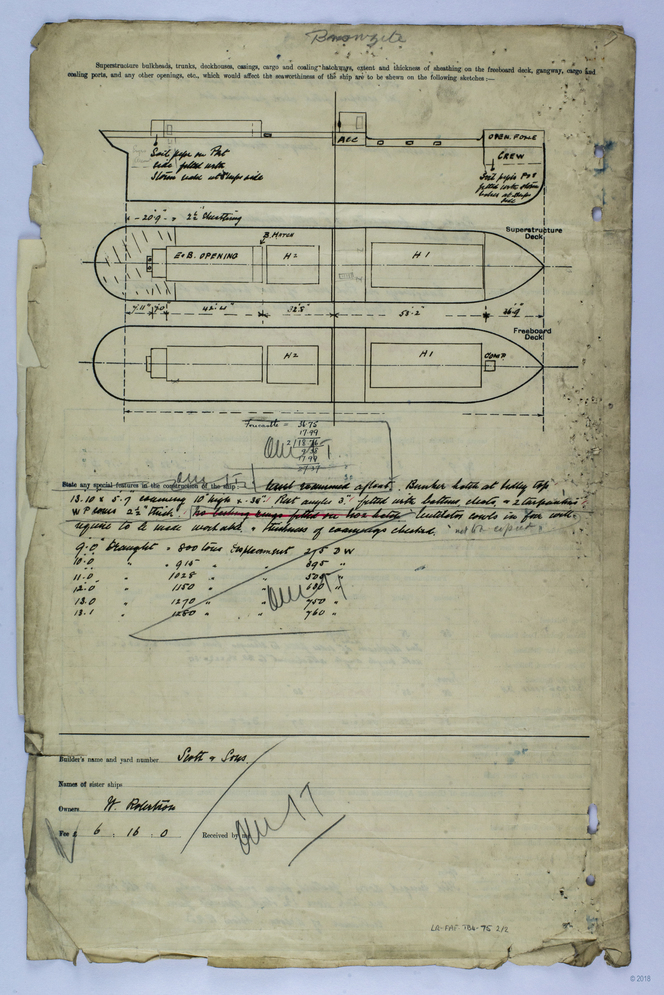 Superstructure bulkheads, trunks, deckhouses, casings, cargo and coaling hatchways, extent and thickness of sheathing on the freeboard deck, gangway, cargo and
coaling ports, and any other openings, etc., which would affect the seaworthiness of the ship are to be shewn on the following sketches :—
ACC
OPEN FOXLE
Soil pipe on Port
side fitted with
Storm valve at ships side
CREW
Soil pipes P & S
fitted with storm
valves at ships
side
20'9" 2½" Sheathing
Superstructure
Deck
B. HATCH
E & B. OPENING
H 2
H 1
7'.11" 7'.0" 42'.4" 32'.5" 53'.2" 26'.9"
Freeboard
Deck
H 2
H 1
Forecastle = 36.75
17.99
State any special features in the construction of the ship afloat. Bunker hatch at
13.10 x 5.7 coaming 10" high x .38" Rest angles 3" fitted with battens, cleats, & 2 tarpaulins
W P covers 2½" thick. No lashing rings fitted on hatch Ventilator cowls in few
require to be made workable. Thickness of coamings checked.
9.0 draught = 800 tons Displacement 275 D W
10.0 " 915 " " 395 "
11.0 " 1028 " "
12.0 " 1150 " "
13.0 " 1270 " " 750 "
13.1 " 1280 " " 760 "
Builder's name and yard number Scott & Sons
Names of sister ships
Owners W. Robertson
Fee £ 6 : 16 : 0 Received by
LR-FAF-TB4-75 2/2
© 2018